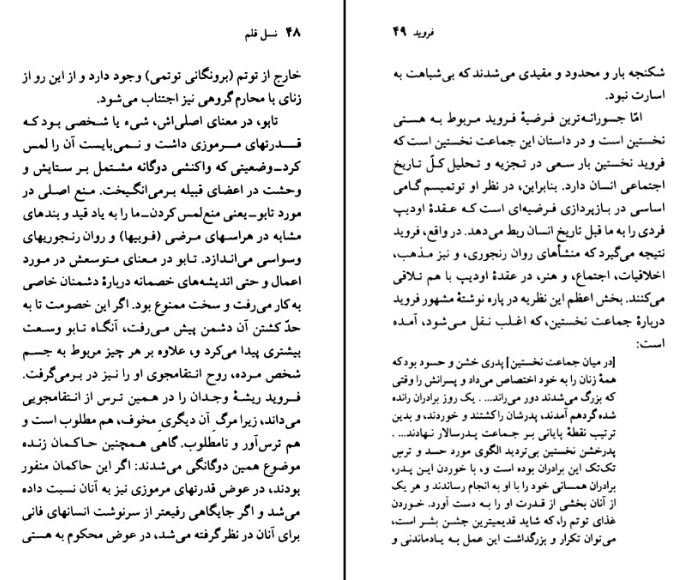 ۴۸ نسل قلم
خارج از توتم (برونگانی توتمی) وجود دارد و از این رو از
زنای با محارم گروهی نیز اجتناب می‌شود.
تابو، در معنای اصلی‌اش، شیء یا شخصی بود که
قدرتهای مرموزی داشت و نمی‌بایست آن را لمس
کرد-وضعیتی که واکنشی دوگانه مشتمل بر ستایش و
وحشت در اعضای قبیله برمی‌انگیخت. منع اصلی در
مورد تابو-یعنی منع لمس کردن-ما را به یاد قید و بندهای
مشابه در هراسهای مرضی (فوبیها) و روان رنجوریهای
وسواسی می‌اندازد. تابو در معنای متوسعش در مورد
اعمال و حتی اندیشه‌های خصمانه دربارهٔ دشمنان خاصی
به کار می‌رفت و سخت ممنوع بود. اگر این خصومت تا به
حدّ کشتن آن دشمن پیش می‌رفت، آنگاه تابو وسعت
بیشتری پیدا می‌کرد و، علاوه بر هر چیز مربوط به جسم
شخص مرده، روح انتقامجوی او را نیز در برمی‌گرفت.
فروید ریشهٔ وجدان را در همین ترس از انتقامجویی
می‌داند، زیرا مرگ آن دیگری مخوف، هم مطلوب است و
هم ترس‌آور و نامطلوب. گاهی همچنین حاکمان زنده
موضوع همین دوگانگی می‌شدند: اگر این حاکمان منفور
بودند، در عوض قدرتهای مرموزی نیز به آنان نسبت داده
می‌شد و اگر جایگاهی رفیعتر از سرنوشت انسانهای فانی
برای آنان در نظر گرفته می‌شد، در عوض محکوم به هستی
فروید ۴۹
شکنجه بار و محدود و مقیدی می‌شدند که بی‌شباهت به
اسارت نبود.
امّا جسورانه‌ترین فرضیهٔ فروید مربوط به هستی
نخستین است و در داستان این جماعت نخستین است که
فروید نخستین بار سعی در تجزیه و تحلیل کلّ تاریخ
اجتماعی انسان دارد. بنابراین، در نظر او توتمیسم گامی
اساسی در بازپردازی فرضیه‌ای است که عقدهٔ اودیپ
فردی را به ما قبل تاریخ انسان ربط می‌دهد. در واقع، فروید
نتیجه می‌گیرد که منشأهای روان رنجوری، و نیز مذهب،
اخلاقیات، اجتماع، و هنر، در عقدهٔ اودیپ با هم تلاقی
می‌کنند. بخش اعظم این نظریه در پاره نوشتهٔ مشهور فروید
دربارهٔ جماعت نخستین، که اغلب نقل می‌شود، آمده
است:
[در میان جماعت نخستین] پدری خشن و حسود بود که
همهٔ زنان را به خود اختصاص می‌داد و پسرانش را وقتی
که بزرگ می‌شدند دور می‌راند... . یک روز برادران رانده
شده گردهم آمدند، پدرشان را کشتند و خوردند، و بدین
ترتیب نقطهٔ پایانی بر جماعت پدرسالار نهادند... .
پدر خشن نخستین بی‌تردید الگوی مورد حسد و ترس
تک‌تک این برادران بوده است و، با خوردن این پدر،
برادران همسانی خود را با او به انجام رساندند و هر یک
از آنان بخشی از قدرت او را به دست آورد. خوردن
غذای توتم را، که شاید قدیمیترین جشن بشر است،
می‌توان تکرار و بزرگداشت این عمل به یادماندنی و